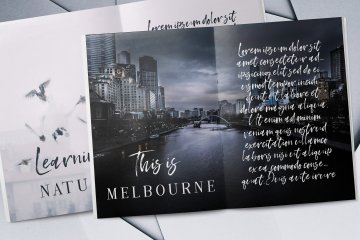 Lorem ipsum dolor sit
Learnin
NATU
This is
MELBOURNE
Lorem ipsum dolor sit
amet consectetur ad-
ipisicing elit sed do ei-
usmod tempor incidi-
labore et
dolore magna aliqua
Ut enim ad minim
veniam quis nostrud
exercitation ullamco
laboris nisi ut aliquip
ex ea commodo conse-
quat. Duis aute irure